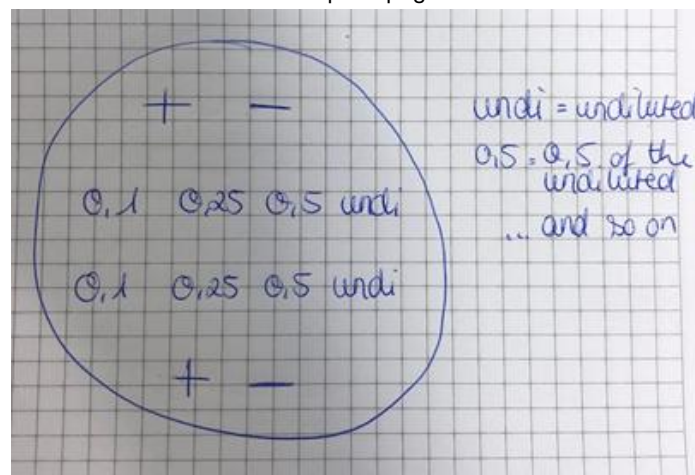 + −
0,1 0,25 0,5 undi
0,1 0,25 0,5 undi
+ −
undi = undiluted
0,5 = 0,5 of the
undiluted
... and so on